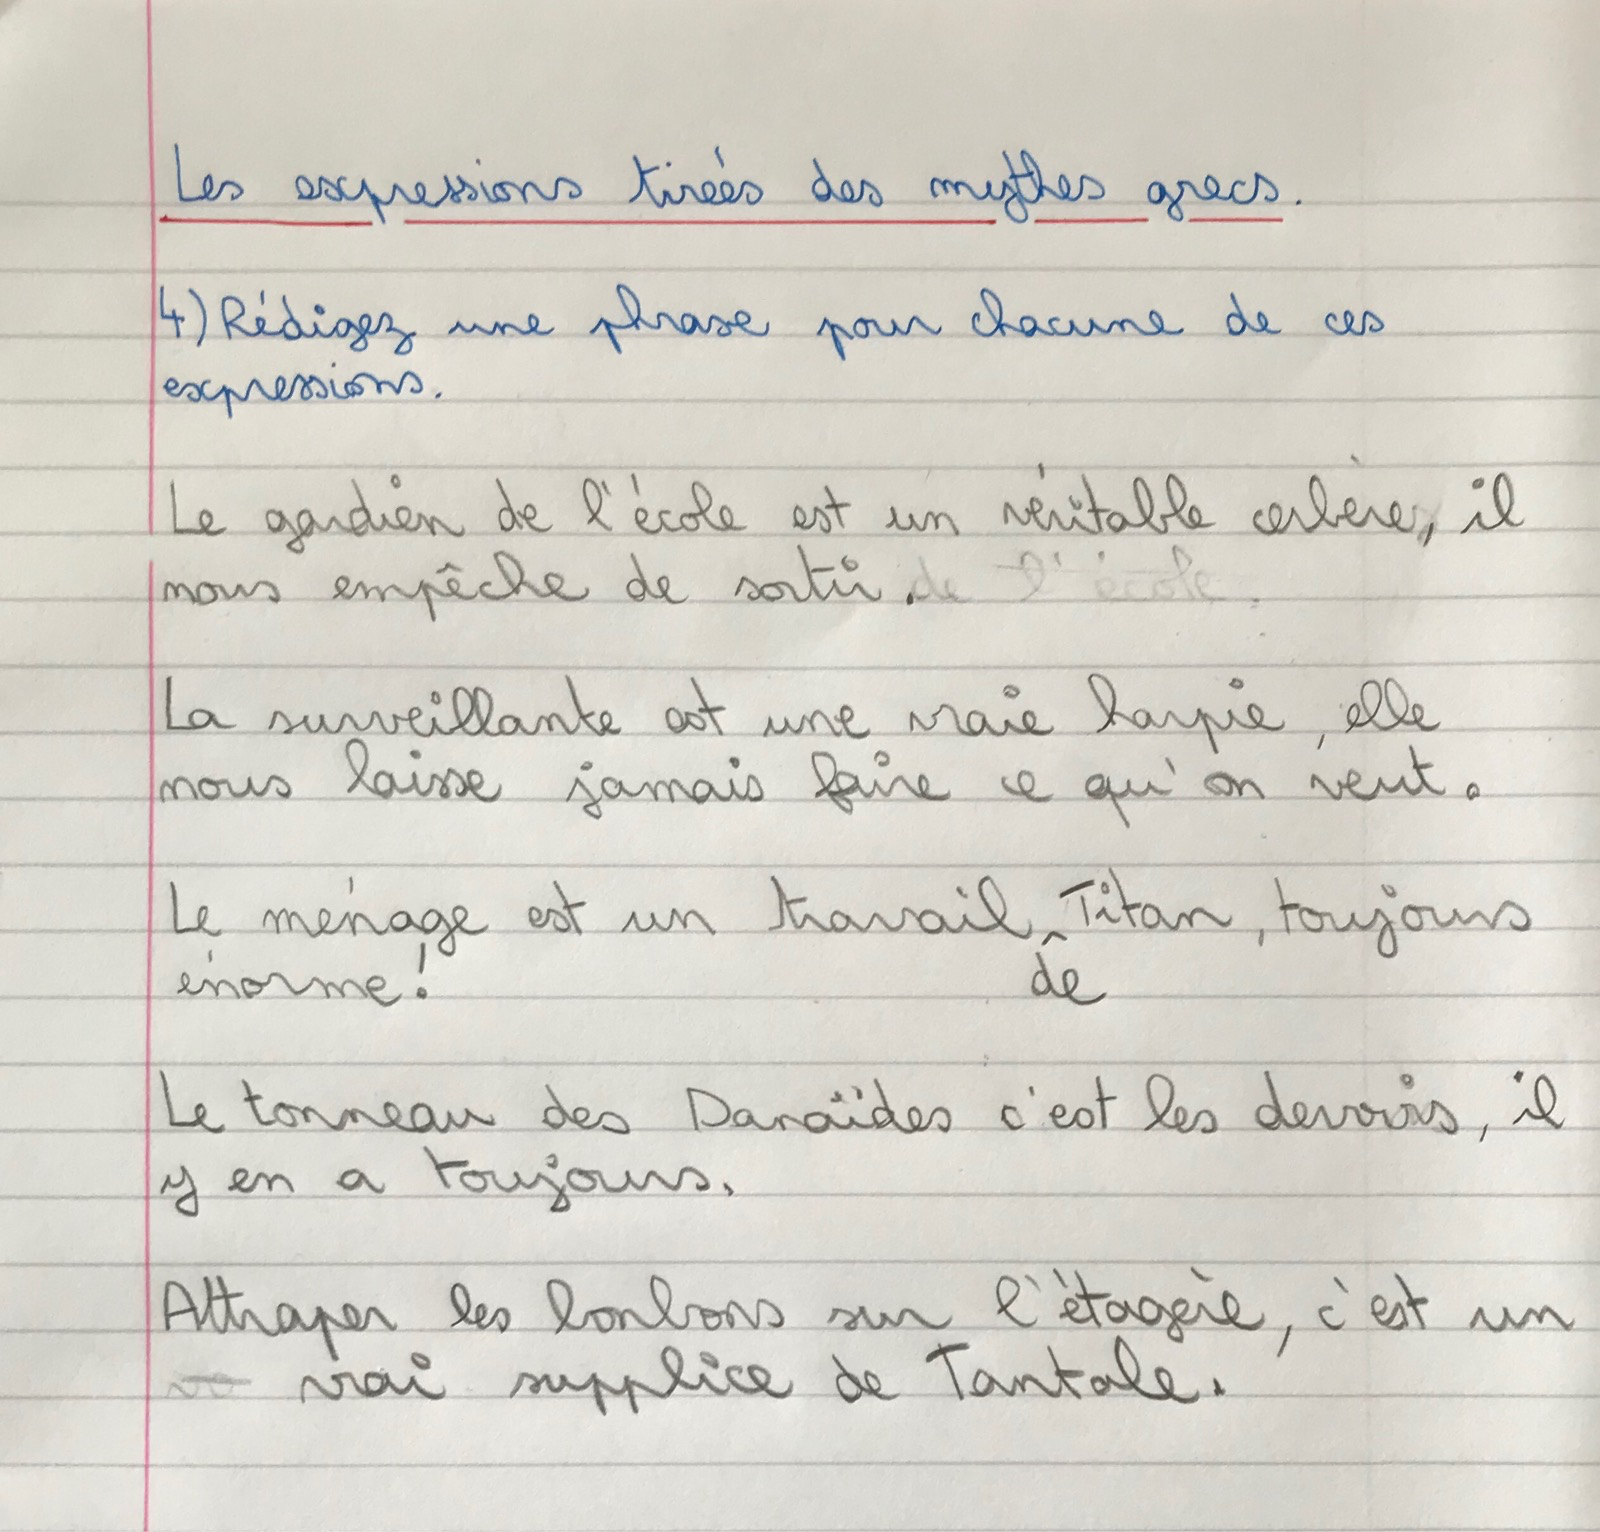 Les expressions tirées des mythes grecs.
4) Rédigez une phrase pour chacune de ces
expressions.
Le gardien de l'école est un véritable cerbère, il
nous empêche de sortir. de l'école.
La surveillante est une vraie harpie, elle
nous laisse jamais faire ce qu'on veut.
Le ménage est un travail ^ Titan, toujours
énorme! de
Le tonneau des Danaïdes c'est les devoirs, il
y en a toujours.
Attraper les bonbons sur l'étagère, c'est un
vrai supplice de Tantale.